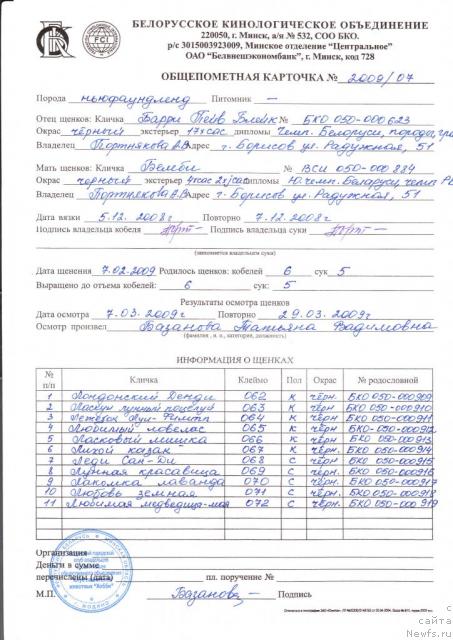 БЕЛОРУССКОЕ КИНОЛОГИЧЕСКОЕ ОБЪЕДИНЕНИЕ
220050, г. Минск, а/я № 532, СОО БКО.
р/с 3015003923009, Минское отделение "Центральное"
ОАО "Белвнешэкономбанк", г. Минск, код 728
FCI
ОБЩЕПОМЕТНАЯ КАРТОЧКА № 2009/07
Порода ньюфаундленд Питомник —
Отец щенков: Кличка Барри Пейв Блейк № БКО 050-000623
Окрас чёрный экстерьер 17хсас дипломы Чемп. Беларуси, породы, гра
Владелец Портнякова А.В. Адрес г. Борисов ул. Радужная, 51
Мать щенков: Кличка Бемби № ВСИ 050-000884
Окрас черный экстерьер 4хсас дипломы Ю.чемп. Беларуси, чемп РБ
Владелец Портнякова А.В. Адрес г. Борисов ул. Радужная, 51
Дата вязки 5.12.2008г Повторно 7.12.2008г
Подпись владельца кобеля Подпись владельца суки
(заполняется владельцем суки)
Дата щенения 7.02.2009 Родилось щенков: кобелей 6 сук 5
Выращено до отъема кобелей: 6 сук: 5
Результаты осмотра щенков
Дата осмотра 7.03.2009г Повторно 29.03.2009г
Осмотр произвел Базанова Татьяна Вадимовна
(фамилия, и. о., категория, должность)
ИНФОРМАЦИЯ О ЩЕНКАХ
№ п/п Кличка Клеймо Пол Окрас № родословной
1 Лондонский Денди 062 К чёрн. БКО 050-000909
2 Ласкун лунный поцелуй 063 К чёрн. БКО 050-000910
3 Лежебок Лул-Филипп 064 К чёрн. БКО 050-000911
4 Любимый ловелас 065 К чёрн. БКО 050-000912
5 Ласковый мишка 066 К чёрн. БКО 050-000913
6 Лихой казак 067 К чёрн. БКО 050-000914
7 Леди Сан-Ди 068 С чёрн. БКО 050-000915
8 Лунная красавица 069 С чёрн. БКО 050-000916
9 Лакомка лаванда 070 С чёрн. БКО 050-000917
10 Любовь земная 071 С чёрн. БКО 050-000918
11 Любимая медведица-моя 072 С чёрн. БКО 050-000919
Организация
Деньги в сумме
перечислены (дата) пл. поручение №
М.П. Базанова Подпись
с сайта Newfs.ru